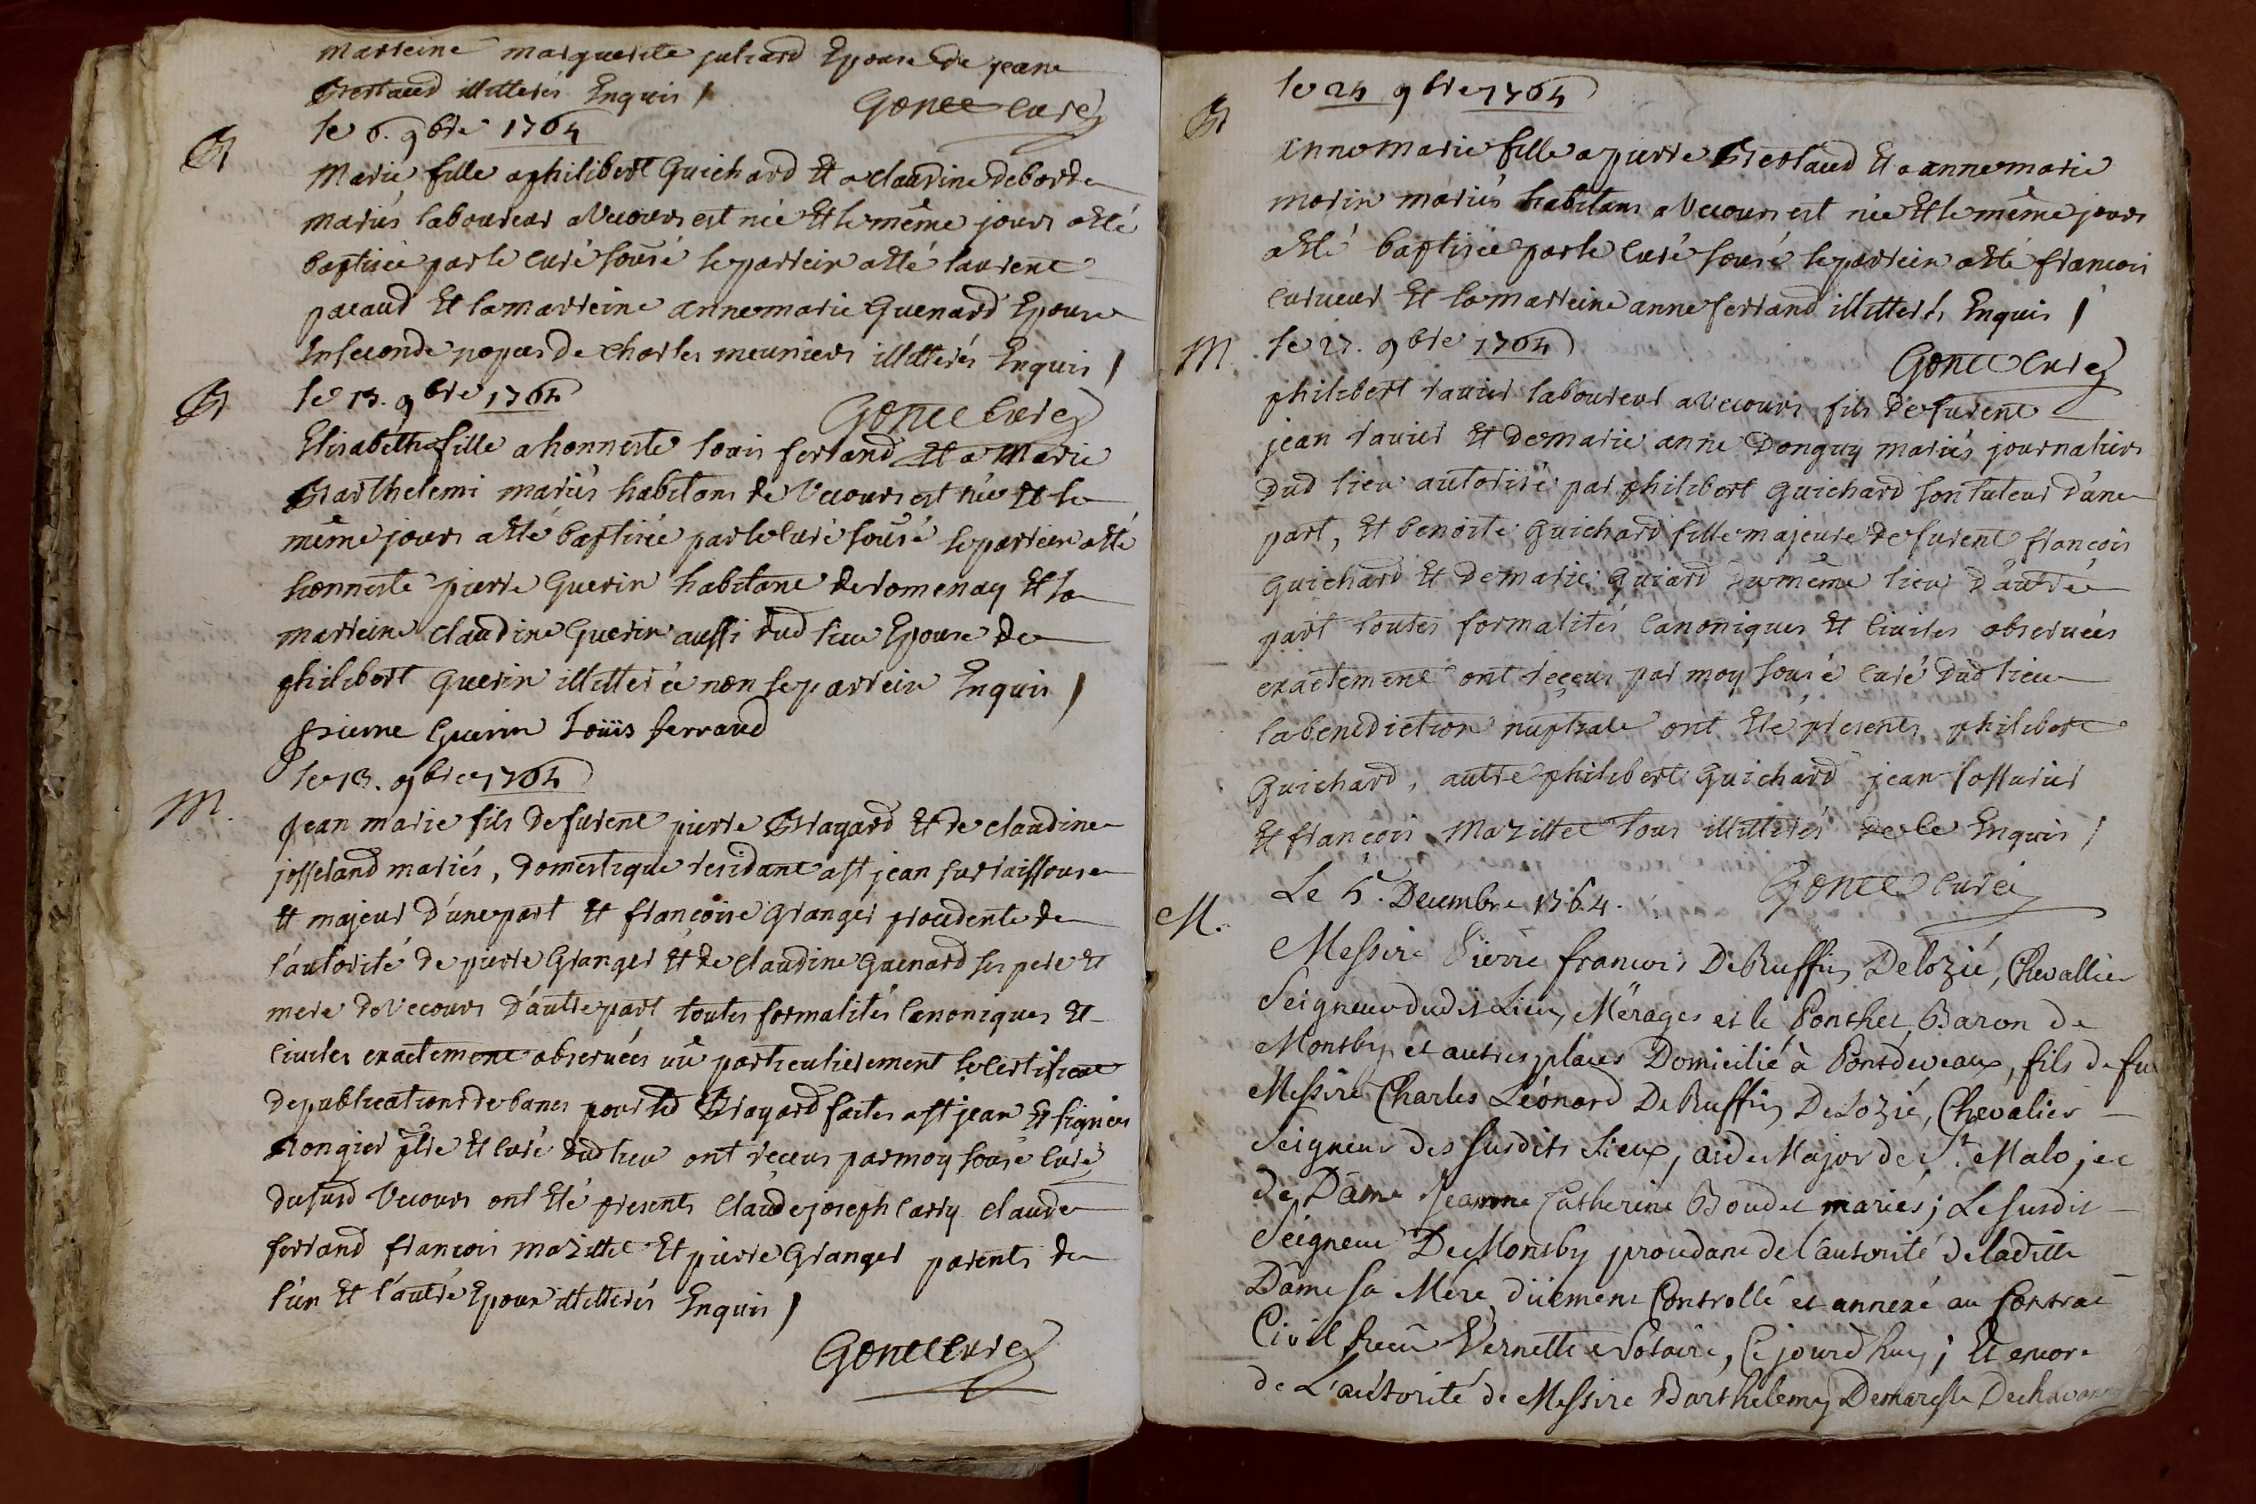 marreine marguerite juliard Epouse de jean
Brestaud illitterés Enquis /
Gonce curé
B
le 6. 9bre 1764
Marie fille a philibert Guichard Et a claudine deborde
mariés laboureur a Vecours est née Et le même jour a Eté
baptisée par le curé sousé le parrein a Eté laurent
pacaud Et la marreine anne marie Guenard Epouse
En seconde nopces de charles meuniers illitterés Enquis /
B
le 13. 9bre 1764
Gonce curé
Elisabeth fille a honneste louis ferrand Et a Marie
Barthelemi mariés habitans de Vecours est née Et le
même jour a Eté baptisée par le curé sousé le parrein a Eté
honneste pierre Guerin habitant de romenay Et la
marreine claudine Guerin aussi dud lieu Epouse de
philibert Guerin illitterée non le parrein Enquis /
pierre Guerin Loüis ferrand
M.
le 13. 9bre 1764
jean marie fils de furent pierre Bragard Et de claudine
josserand mariés, domestique residant a st jean sur raissouse
Et majeur d'une part Et françoise Granger procedente de
l'autorité de pierre Granger Et de claudine Guenard ses pere Et
mere de Vecours d'autre part toutes formalités canoniques Et
civiles exactement observées vû particulierement le certificat
de publications de bancs pour led Bragard faites a st jean Et signées
Rongier ptre Et curé dud lieu ont reçeus par moy sousé curé
du susd Vecours ont Eté presents claude joseph carry claude
ferrand françois mazillet Et pierre Granger parents de
l'un Et l'autre Epoux illitterés Enquis /
Gonce curé
B
le 24 9bre 1764
anne marie fille a pierre Brestaud Et a anne marie
morin mariés habitans a Vecours est née Et le même jour
a Eté baptisée par le curé sousé le parrein a Eté françois
curveur Et la marreine anne ferrand illitterés Enquis /
M.
le 27. 9bre 1764
Gonce curé
philibert ravier laboureur a Vecours fils de furent
jean ravier Et de marie anne Donguy mariés journaliers
dud lieu autorisé par philibert guichard son tuteur d'une
part, Et benoite guichard fille majeure de furent françois
guichard Et de marie guiard du même lieu d'autre
part toutes formalités canoniques Et civiles observées
exactement ont reçeus par moy sousé curé dud lieu
la benediction nuptiale ont Eté presents philibert
guichard, autre philibert guichard jean
Et françois Mazillet tous illitterés de ce Enquis /
Gonce curé
M.
Le 5e. Decembre 1764.
Messire Pierre francois De Ruffin Delozié, Chevallier
Seigneur dudit Lieu, Mérages et le Ponthet, Baron de
Montby et autres places Domicilié à Pontdeveaux, fils de fu
Messire Charles Léonard De Ruffin De Lozié, Chevalier
Seigneur des susdits Lieux, aide Major de St. Malo, et
de Dame Jeanne Catherine Boudet mariés; Le susdit
Seigneur De Montby procedant de l'autorité de laditte
Dame sa Mére, düement Controllé et annexé au Contrat
Civil Vernette Notaire, Ce jourd'huy; Et encore
de L'autorité de Messire Barthelemy Demareste